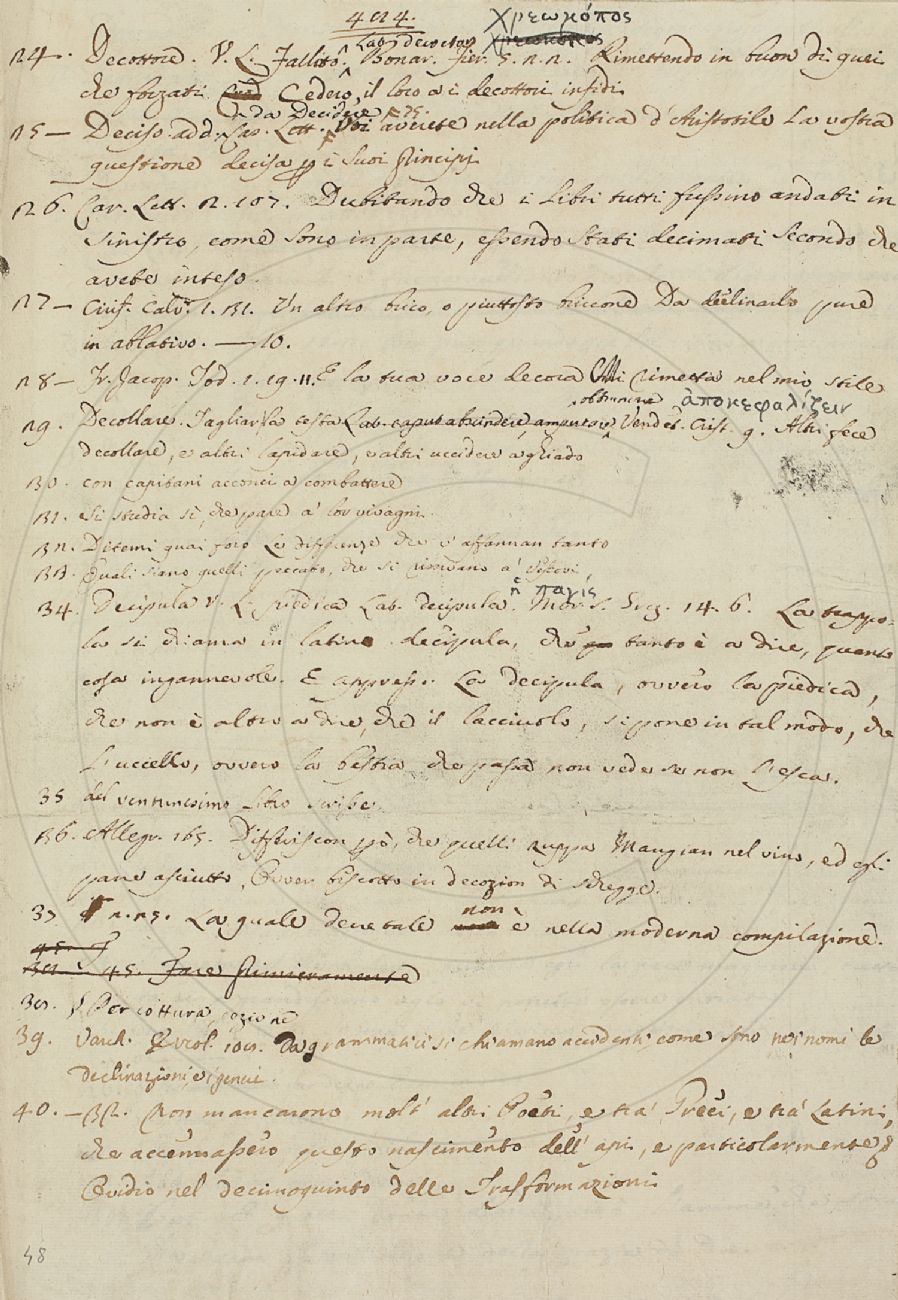 424.
χρεωκόπος
24. Decottore. V. L. Fallito. Lat. decoctor Bonar. Fier. 5. 2. 2. Rimettendo in buon di quei
che forzati Cedero, il loro a i decottori infidi
25 – Deciso. add. da Decidere Car. Lett. Voi avrete nella politica d'Aristotile la vostra
questione decisa i suoi principj
26. Car. Lett. 2. 107. Dubitando che i libri tutti fussino andati in
sinistro, come sono in parte, essendo stati decimati secondo che
avete inteso.
27 – Criss. Calv. 1. 31. Un altro buco, o piuttosto buccone Da declinarlo pure
in ablativo. — 10.
28 – Fr. Jacop. Tod. 1. 19. 11. E la tua voce decora Mi rimetta nel mio stile
obtruncare ἀποκεφαλίζειν
29. Decollare. Tagliar la testa Lat. caput abscindere, amputare Vend. Crist. 9. Altri fece
decollare, e altri lapidare, e altri uccidere a ghiado
30. con capitani acconci a combattere
31. Si studia sì, che pare a lor vivagni.
32. Ditemi quai foro le dispense che v'affannan tanto
33. Quali siano quelli peccati, che si riserbano a' Vescovi
ἡ παγίς
34. Decipula V. L. piedica Lat. decipula. Mor. S. Greg. 14. 6. La trappo-
la si chiama in latino decipula, che tanto è a dire, quanto
cosa ingannevole. E appresso. La decipula, ovvero la piedica,
che non è altro a dire, che il lacciuolo, si pone in tal modo, che
l'uccello, ovvero la bestia che passa non vede se non l'esca.
35 del ventunesimo libro scrisse.
36. Allegr. 165. Differiscon però, che quelli zuppa Mangian nel vino, ed egli
pane asciutto, Ovver biscotto in decozion di schegge.
37 2. 25. La quale decretale non è nella moderna compilazione.
45. Fare primieramente
38. Per cottura, cozione
39. Varch. Ercol. 108. Da grammatici si chiamano accidenti, come sono nei nomi le
declinazioni, e i generi.
40. – Non mancarono molt' altri Poeti, e tra' Greci, e tra' Latini,
che accennassero questo nascimento dell' api, e particolarmente
Ovidio nel decimoquinto delle Trasformazioni
48